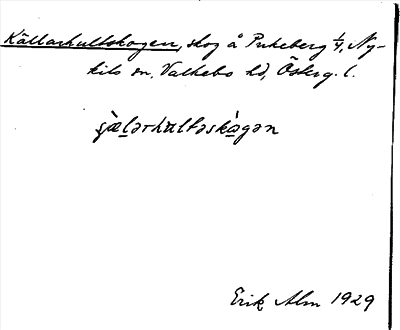 Källarhultskogen, skog å Pukeberg 1/4, Ny-
kils sn, Valkebo hd, Österg. l.
çæ̀lərhultəskɑ̀gən
Erik Alm 1929